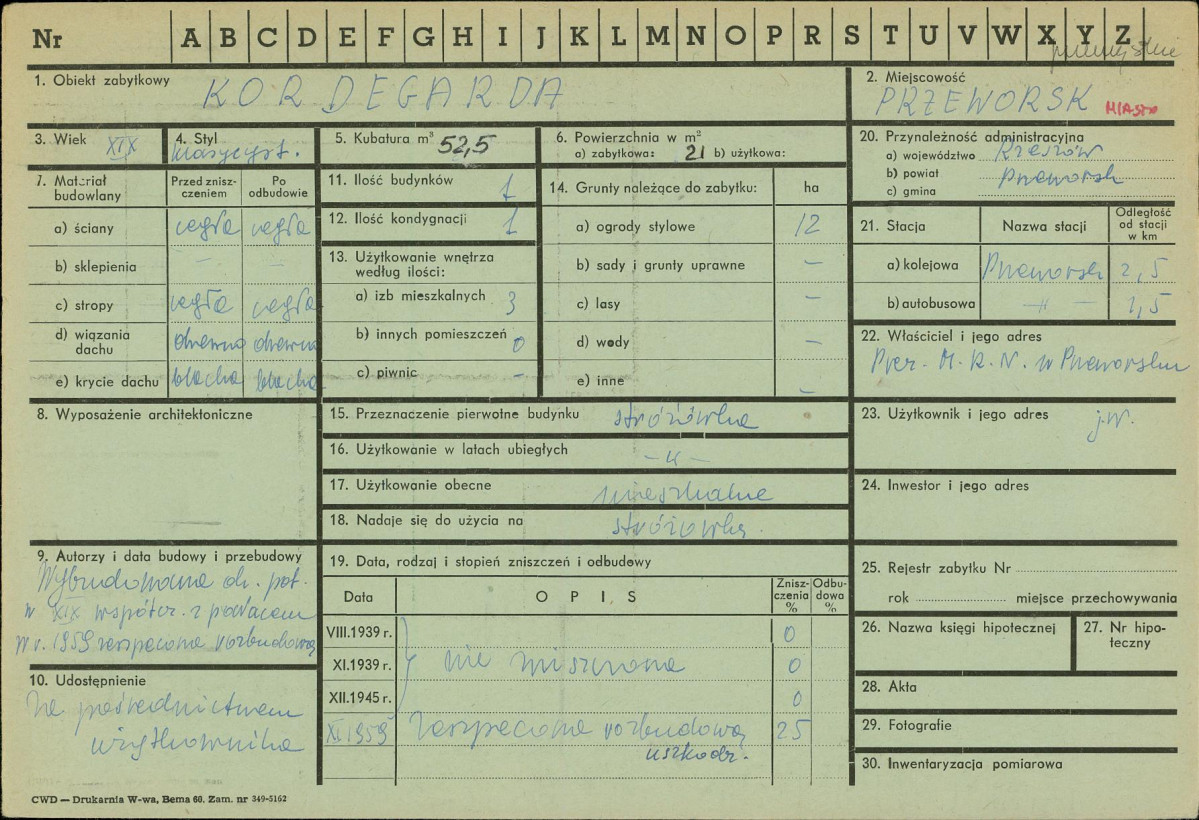 Nr A B C D E F G H I J K L M N O P R S T U V W X Y Z
1. Obiekt zabytkowy KORDEGARDA
2. Miejscowość
PRZEWORSK MIASTO
3. Wiek XIX
4. Styl
klasycyst.
5. Kubatura m³ 52,5
6. Powierzchnia w m²
a) zabytkowa: 21 b) użytkowa:
7. Materiał budowlany
Przed zniszczeniem
Po odbudowie
a) ściany cegła cegła
b) sklepienia – –
c) stropy cegła cegła
d) wiązania dachu drewno drewno
e) krycie dachu blacha blacha
8. Wyposażenie architektoniczne
9. Autorzy i data budowy i przebudowy
Wybudowana ok. poł.
w XIX współcz. z pałacem
W r. 1959 zeszpecona rozbudową
10. Udostępnienie
Za pośrednictwem
użytkownika
11. Ilość budynków 1
12. Ilość kondygnacji 1
13. Użytkowanie wnętrza
według ilości:
a) izb mieszkalnych 3
b) innych pomieszczeń 0
c) piwnic –
14. Grunty należące do zabytku: ha
a) ogrody stylowe 12
b) sady i grunty uprawne –
c) lasy –
d) wody –
e) inne –
15. Przeznaczenie pierwotne budynku stróżówka
16. Użytkowanie w latach ubiegłych –"–
17. Użytkowanie obecne mieszkalne
18. Nadaje się do użycia na stróżówkę.
19. Data, rodzaj i stopień zniszczeń i odbudowy
Data
OPIS
Zniszczenia %
Odbudowa %
VIII.1939 r. 0
XI.1939 r. nie niszczona 0
XII.1945 r. 0
XI 1959 zeszpecona rozbudową 25
uszkodz.
20. Przynależność administracyjna
a) województwo Rzeszów
b) powiat Przeworsk
c) gmina
21. Stacja Nazwa stacji Odległość od stacji w km
a) kolejowa Przeworsk 2,5
b) autobusowa –"– 1,5
22. Właściciel i jego adres
Prez. M. R. N. w Przeworsku
23. Użytkownik i jego adres j.w.
24. Inwestor i jego adres
25. Rejestr zabytku Nr
rok miejsce przechowywania
26. Nazwa księgi hipotecznej
27. Nr hipoteczny
28. Akta
29. Fotografie
30. Inwentaryzacja pomiarowa
CWD — Drukarnia W-wa, Bema 60. Zam. nr 349-5162